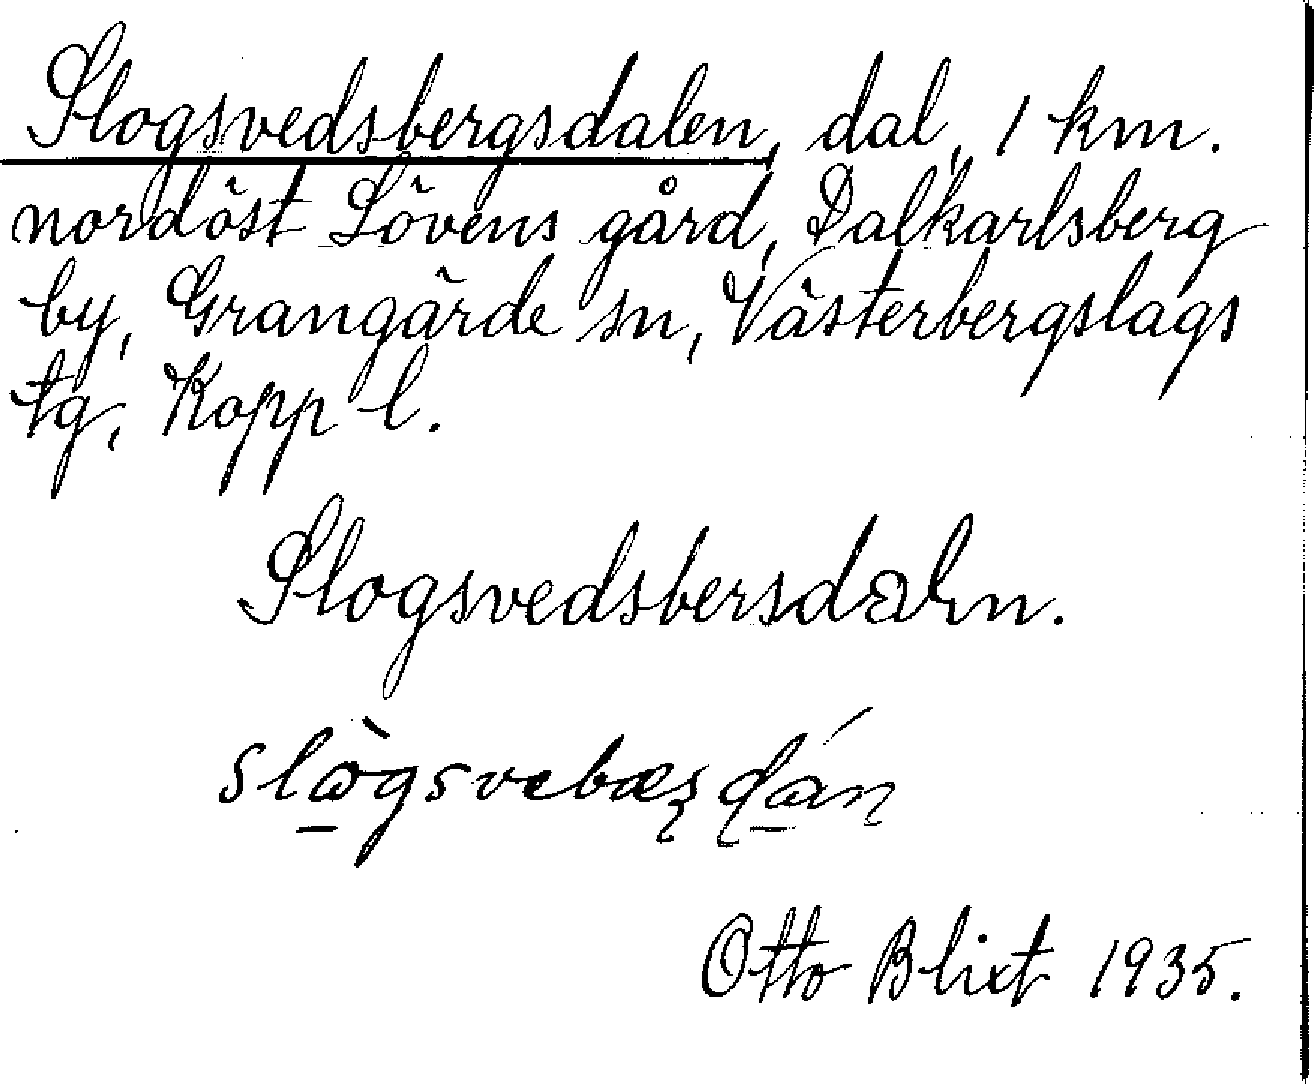 Slogsvedsbergsdalen, dal, 1 km.
nordöst Lövens gård, Dalkarlsberg
by, Grangärde sn, Västerbergslags
tg, Kopp l.
Slogsvedsbersdaln.
Otto Blixt 1935.